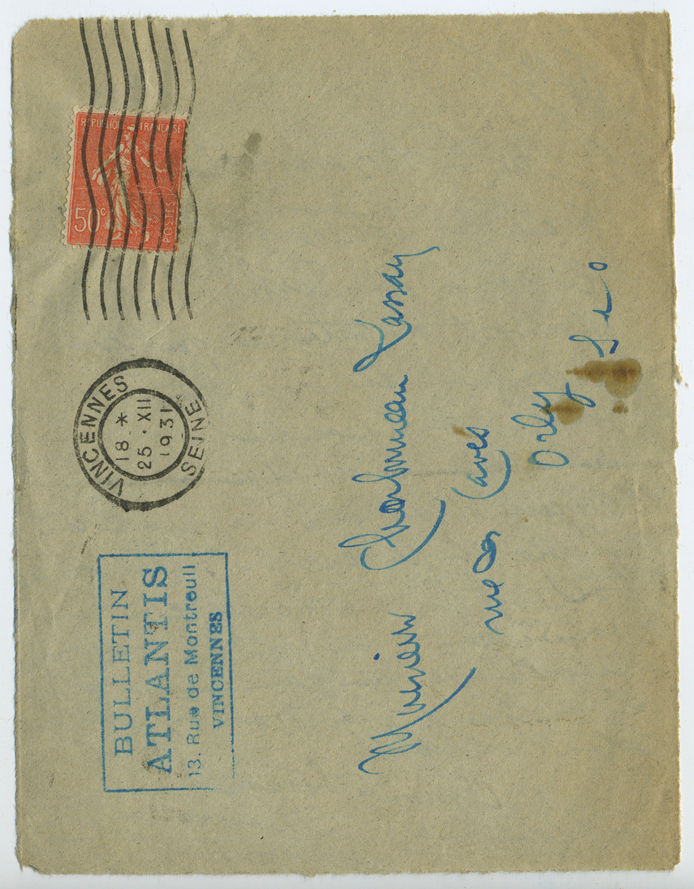 BULLETIN
ATLANTIS
13. Rue de Montreuil
VINCENNES
VINCENNES
18 *
25 · XII
1931
SEINE
REPUBLIQUE FRANÇAISE
50c
POSTES
Monsieur Charbonneau Lassay
Caves
Orly